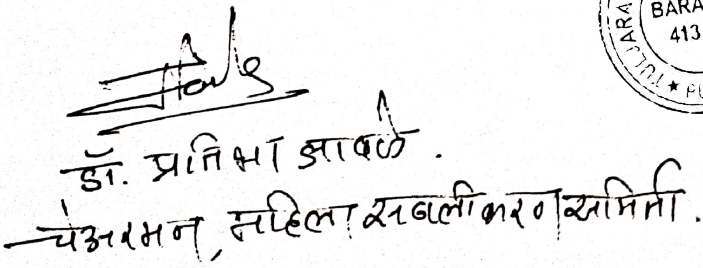 BARA
413
TULJARA
★ PU
डॉ. प्रतिभा आवळे.
चेअरमन, महिला सबलीकरण समिती.